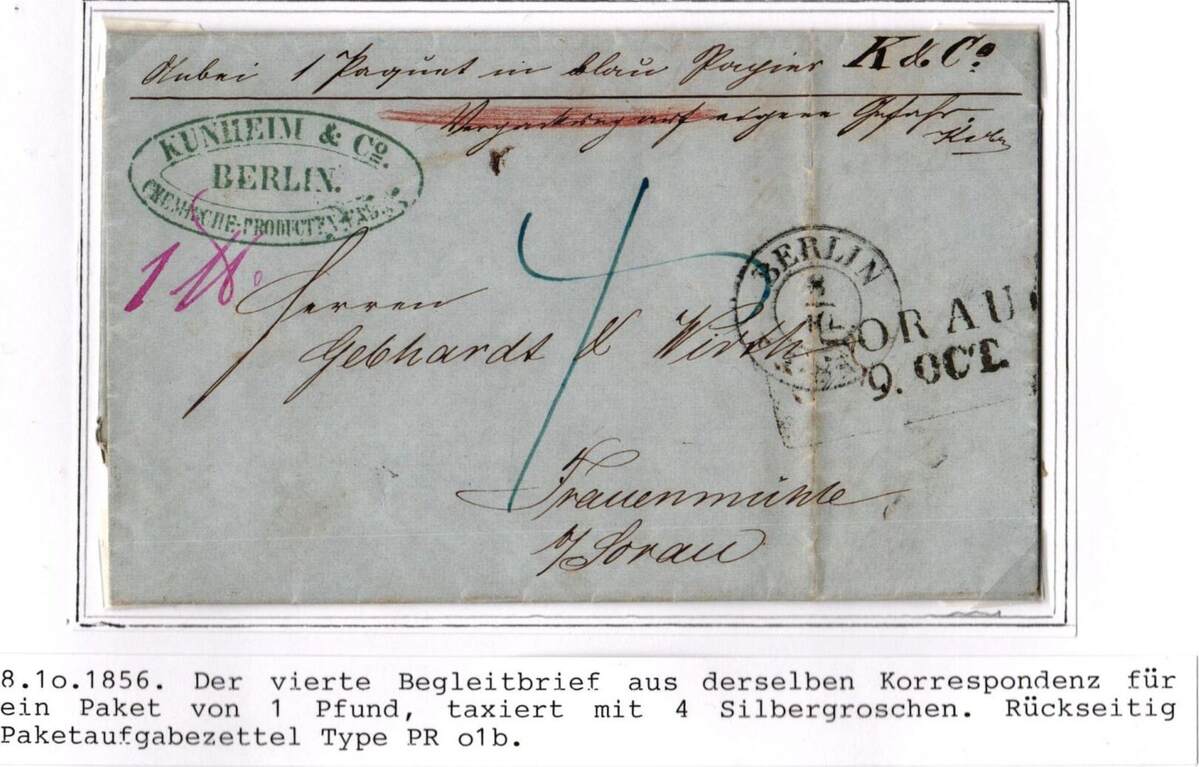 Anbei 1 Paquet in blau Papier K & Cº
Verpackung auf eigene Gefahr.
KUNHEIM & Cº.
BERLIN.
CHEMISCHE-PRODUCTEN
1 ℔.
4
Herren
Gebhardt & Wirth
BERLIN
8
10
ORAU
9. OCT.
Frauenmühle
a/Sorau
8.1o.1856. Der vierte Begleitbrief aus derselben Korrespondenz für
ein Paket von 1 Pfund, taxiert mit 4 Silbergroschen. Rückseitig
Paketaufgabezettel Type PR o1b.